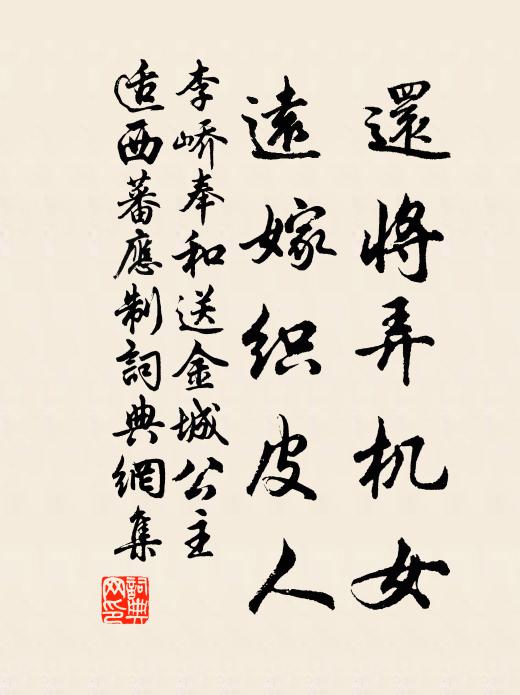 還將弄机女
遠嫁织皮人
李嶠奉和送金城公主
适西蕃應制詞典網集
詞典网印